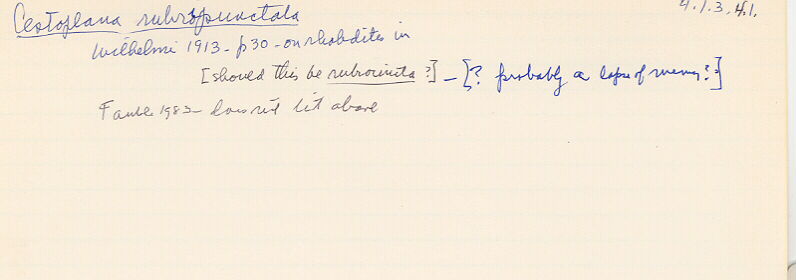 4.1.3.4.1.
Cestoplana rubropunctata
Wilhelmi 1913 - p30 - on rhabdites in
[should this be rubrocincta ?] - [? probably a lapse of memory?]
Faubel 1983 - doesn't list above